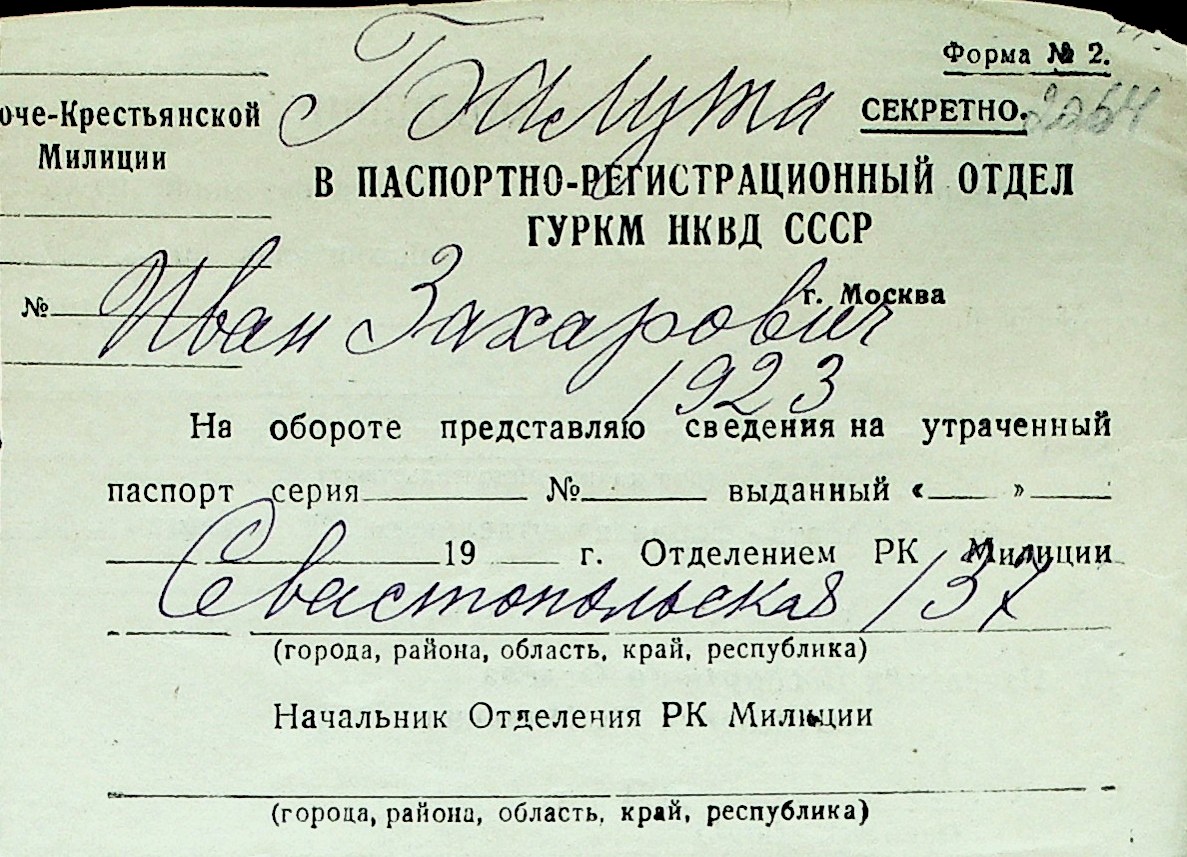 Форма № 2.
Балута
СЕКРЕТНО.
оче-Крестьянской
Милиции
В ПАСПОРТНО-РЕГИСТРАЦИОННЫЙ ОТДЕЛ
ГУРКМ НКВД СССР
№
г. Москва
Иван Захарович
1923
На обороте представляю сведения на утраченный
паспорт серия № выданный « »
19 г. Отделением РК Милиции
Севастопольская 137
(города, района, область, край, республика)
Начальник Отделения РК Милиции
(города, района, область, край, республика)